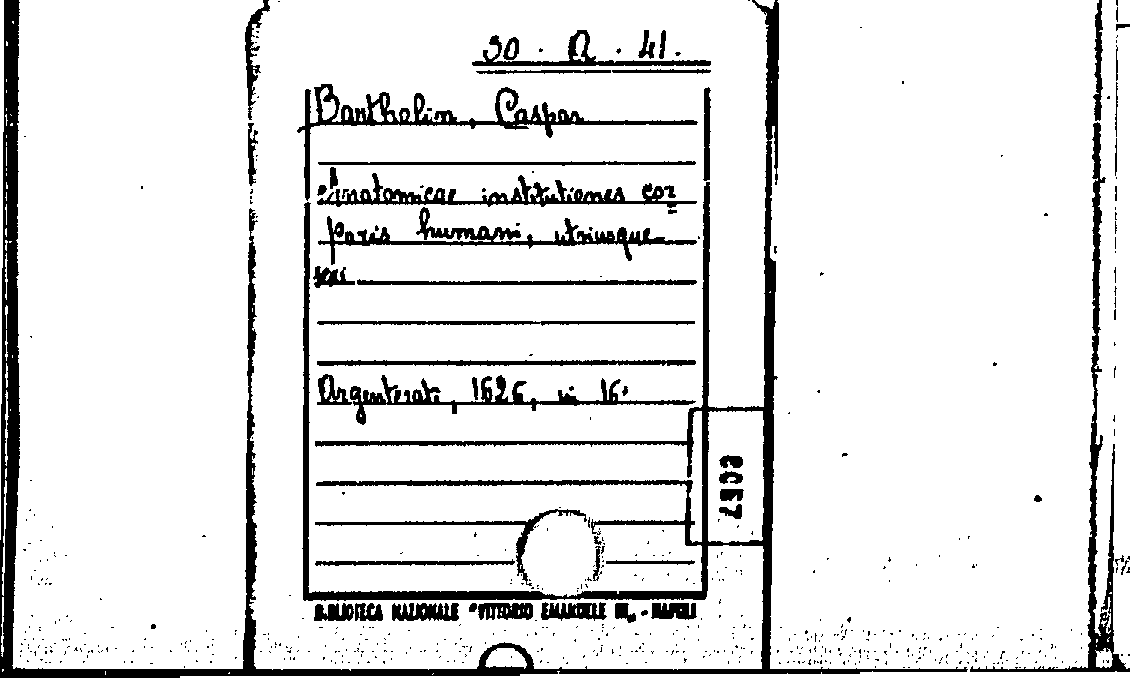 30 · A · 41.
Bartholin, Caspar
Anatomicae institutiones cor=
poris humani, utriusque
sexi
Argenterati, 1626, in 16°
BIBLIOTECA NAZIONALE "VITTORIO EMANUELE III„ - NAPOLI